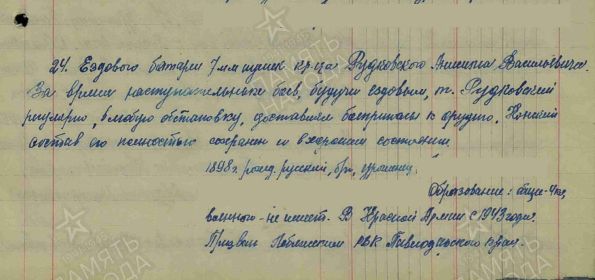 24. Ездового батареи 7 мм пушек кр-ца Рудковского Васильевича.
За время наступательных боев, будучи ездовым, т. Рудковский
регулярно, в любую обстановку, доставлял боеприпасы к орудию. Конский
состав его полностью сохранен и в хорошем состоянии.
1898 г. рожд. русский, б/п, уроженец
Образование: общее - 4 кл,
военного - не имеет. В Красной Армии с 1943 года.
Призван РВК Павлодарского
ПАМЯТЬ НАРОДА